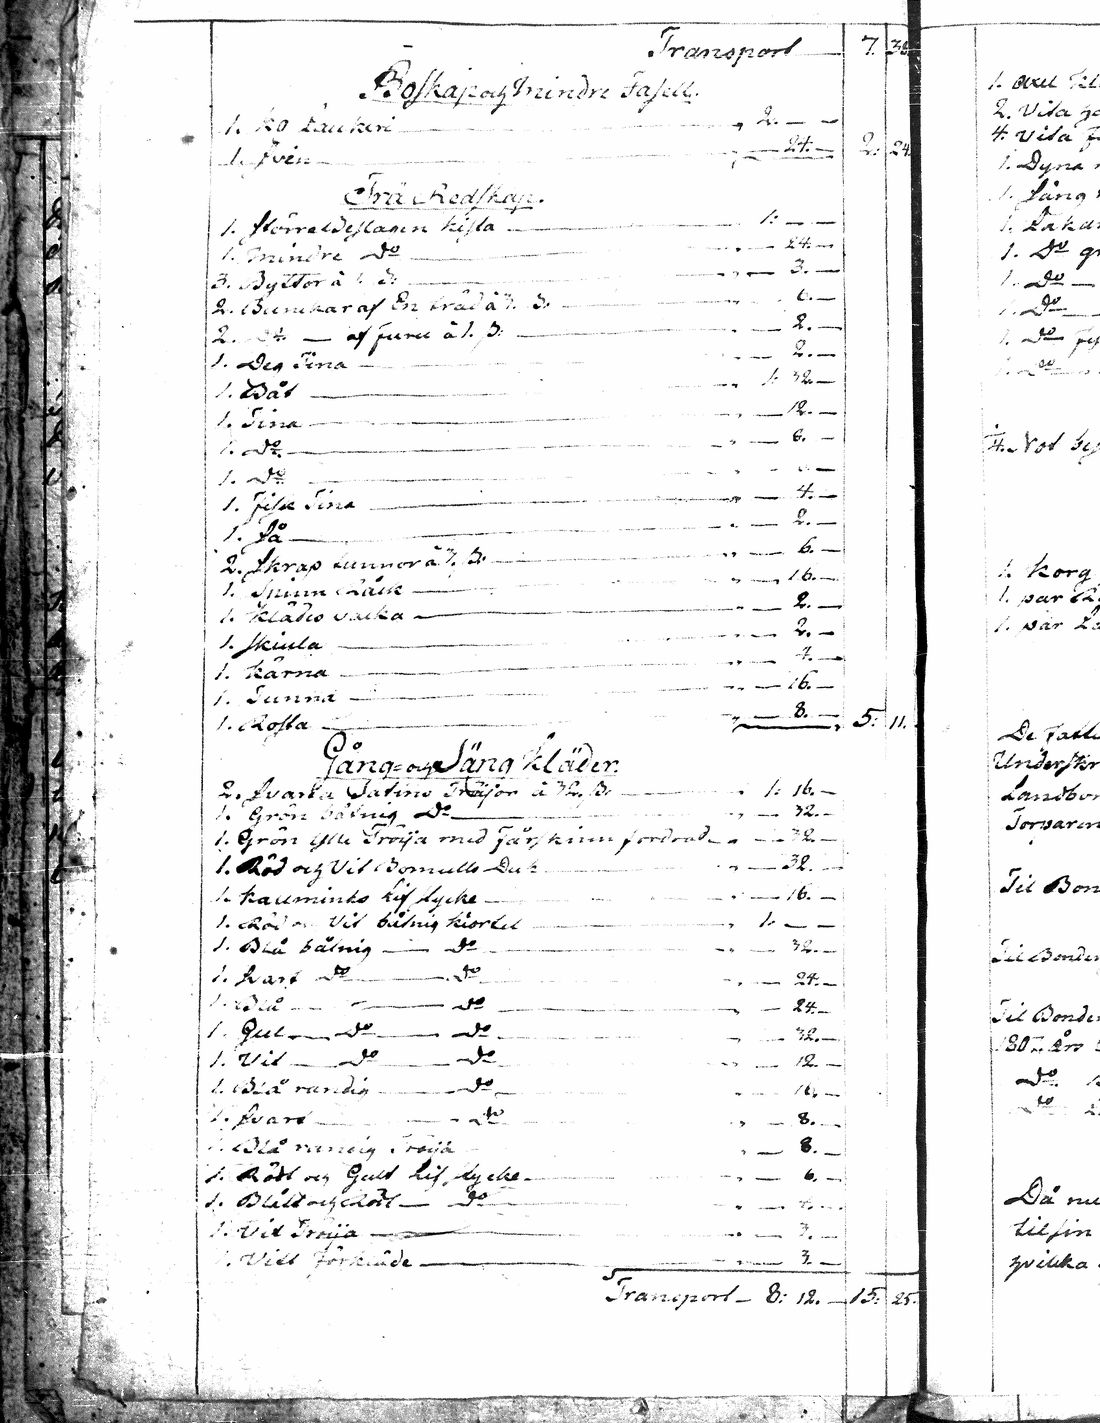 Transport 7. 38
Boskap och Mindre Fasell.
1. Ko Lackeri 2. — —
1. Svin — 24. — 2: 24
Trä Redskap.
1. större beslagen kista 1: — —
1. Mindre Do — 24. —
3. Byttor à 1 ß: — 3. —
2. Bunkar af En träd à 3. ß: — 6. —
2. Do — af furu à 1. ß: — 2. —
1. Deg Tina — 2. —
1. Båt 1: 32. —
1. Tina — 12. —
1. Do — 6. —
1. Do
1. Fisk Tina — 4. —
1. Så — 2. —
2. Skrap tunnor à 3. ß: — 6. —
1. Spinn Råck — 16. —
1. Klädes valka — 2. —
1. skiula — 2. —
1. Kärna — 4. —
1. Tunna — 16. —
1. Rosta — 8. — 5: 11.
Gång- och Säng kläder.
2. svarta Satins Tröijor à 32. ß: 1: 16. —
1. Grön båtnig Do — 32. —
1. Grön Ylle Tröija med fårskinn fordrad — 32. —
1. Röd och Vit Bomulls Do — 32. —
1. kalminks lif stycke — 16. —
1. Röd och Vit båtnig kiortel 1: — —
1. Blå båtnig — Do — 32. —
1. svart Do — Do — 24. —
1. Blå — Do — 24. —
1. Gul — Do — Do — 32. —
1. Vit — Do — Do — 12. —
1. Blå randig — Do — 16. —
1. svart — Do — 8. —
1. Blå randig Tröija — 8. —
1. Rödt och Gult lif stycke — 6. —
1. Blått och Rödt — Do
1. Vit Tröija — 3. —
1. Vitt förkläde — 3. —
Transport — 8: 12. — 15: 25.
1. Axel
2. Vita
4. Vita
1. Dyna
1. Säng
1. Lakan
1. Do
1. Do —
1. Do
1. Do
1. Do
Not
1. Korg
1. par
1. par
De
Underskr
Landbon
Torparen
Til Bon
Til Bonden
Til Bonden
Do
Do
Då nu
tilfin
hvilka